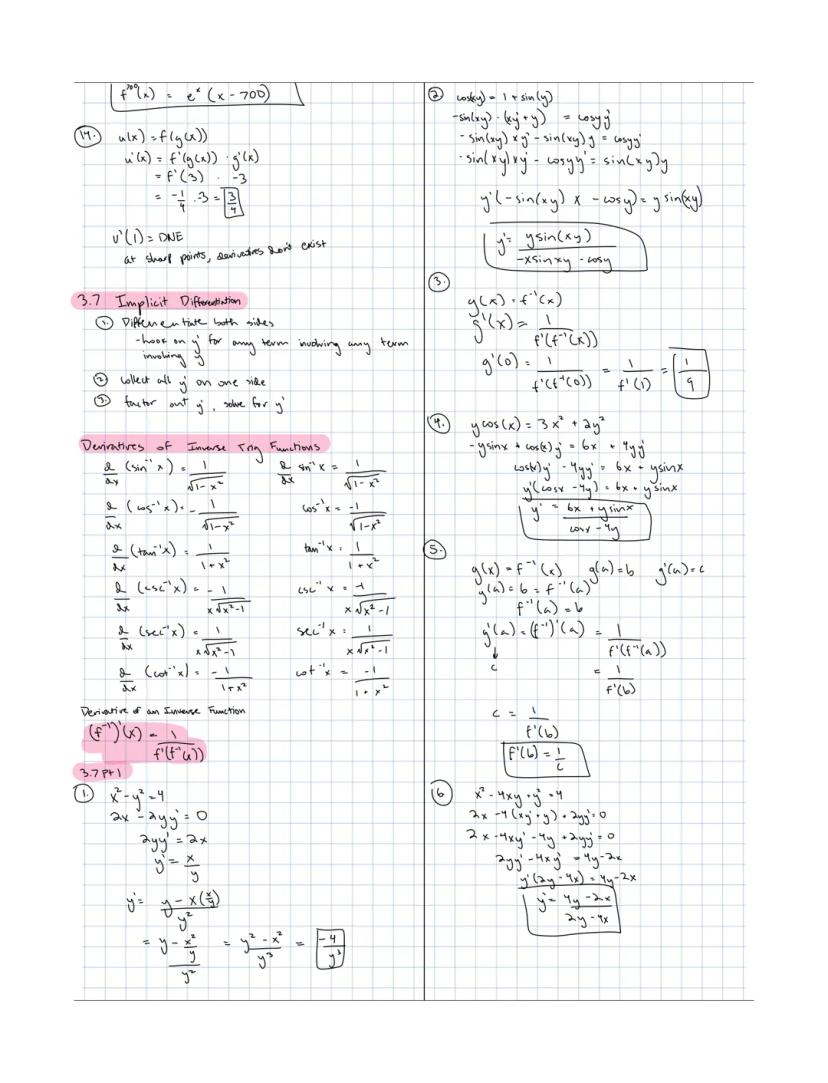 f⁷⁰⁰(x) = eˣ (x - 700)
14. u(x) = f(g(x))
u'(x) = f'(g(x)) · g'(x)
= f'(3) · -3
= -1/4 · -3 = 3/4
v'(1) = DNE
at sharp points, derivatives don't exist
3.7 Implicit Differentiation
1. Differentiate both sides
- hook on y' for any term involving any term
involving y
2. collect all y' on one side
3. factor out y', solve for y'
Derivatives of Inverse Trig Functions
d/dx (sin⁻¹ x) = 1/√(1-x²) d/dx sin⁻¹ x = 1/√(1-x²)
d/dx (cos⁻¹ x) = - 1/√(1-x²) cos⁻¹ x = -1/√(1-x²)
d/dx (tan⁻¹ x) = 1/(1+x²) tan⁻¹ x = 1/(1+x²)
d/dx (csc⁻¹ x) = - 1/(x√(x²-1)) csc⁻¹ x = -1/(x√(x²-1))
d/dx (sec⁻¹ x) = 1/(x√(x²-1)) sec⁻¹ x = 1/(x√(x²-1))
d/dx (cot⁻¹ x) = - 1/(1+x²) cot⁻¹ x = -1/(1+x²)
Derivative of an Inverse Function
(f⁻¹)'(x) = 1/(f'(f⁻¹(x)))
3.7 Pt 1
1. x² - y² = 4
2x - 2yy' = 0
2yy' = 2x
y' = x/y
y' = (y - x(x/y))/y²
= (y - x²/y)/y² = (y² - x²)/y³ = -4/y³
2. cos(xy) = 1 + sin(y)
-sin(xy) · (xy' + y) = cosyy'
- sin(xy) xy' - sin(xy) y = cosyy'
- sin(xy) xy' - cosyy' = sin(xy)y
y'(-sin(xy) x - cosy) = y sin(xy)
y' = ysin(xy)/(-xsinxy - cosy)
3.
g(x) = f⁻¹(x)
g'(x) = 1/(f'(f⁻¹(x)))
g'(0) = 1/(f'(f⁻¹(0))) = 1/(f'(1)) = 1/9
4. y cos(x) = 3x² + 2y²
- ysinx + cos(x)y' = 6x + 4yy'
cos(x)y' - 4yy' = 6x + ysinx
y'(cosx - 4y) = 6x + ysinx
y' = (6x + ysinx)/(cosx - 4y)
5.
g(x) = f⁻¹(x) g(a) = b g'(a) = c
g(a) = b = f⁻¹(a)
f⁻¹(a) = b
g'(a) = (f⁻¹)'(a) = 1/(f'(f⁻¹(a)))
↓
c = 1/(f'(b))
c = 1/(f'(b))
f'(b) = 1/c
6. x² - 4xy + y² = 4
2x - 4(xy' + y) + 2yy' = 0
2x - 4xy' - 4y + 2yy' = 0
2yy' - 4xy' = 4y - 2x
y'(2y - 4x) = 4y - 2x
y' = (4y - 2x)/(2y - 4x)